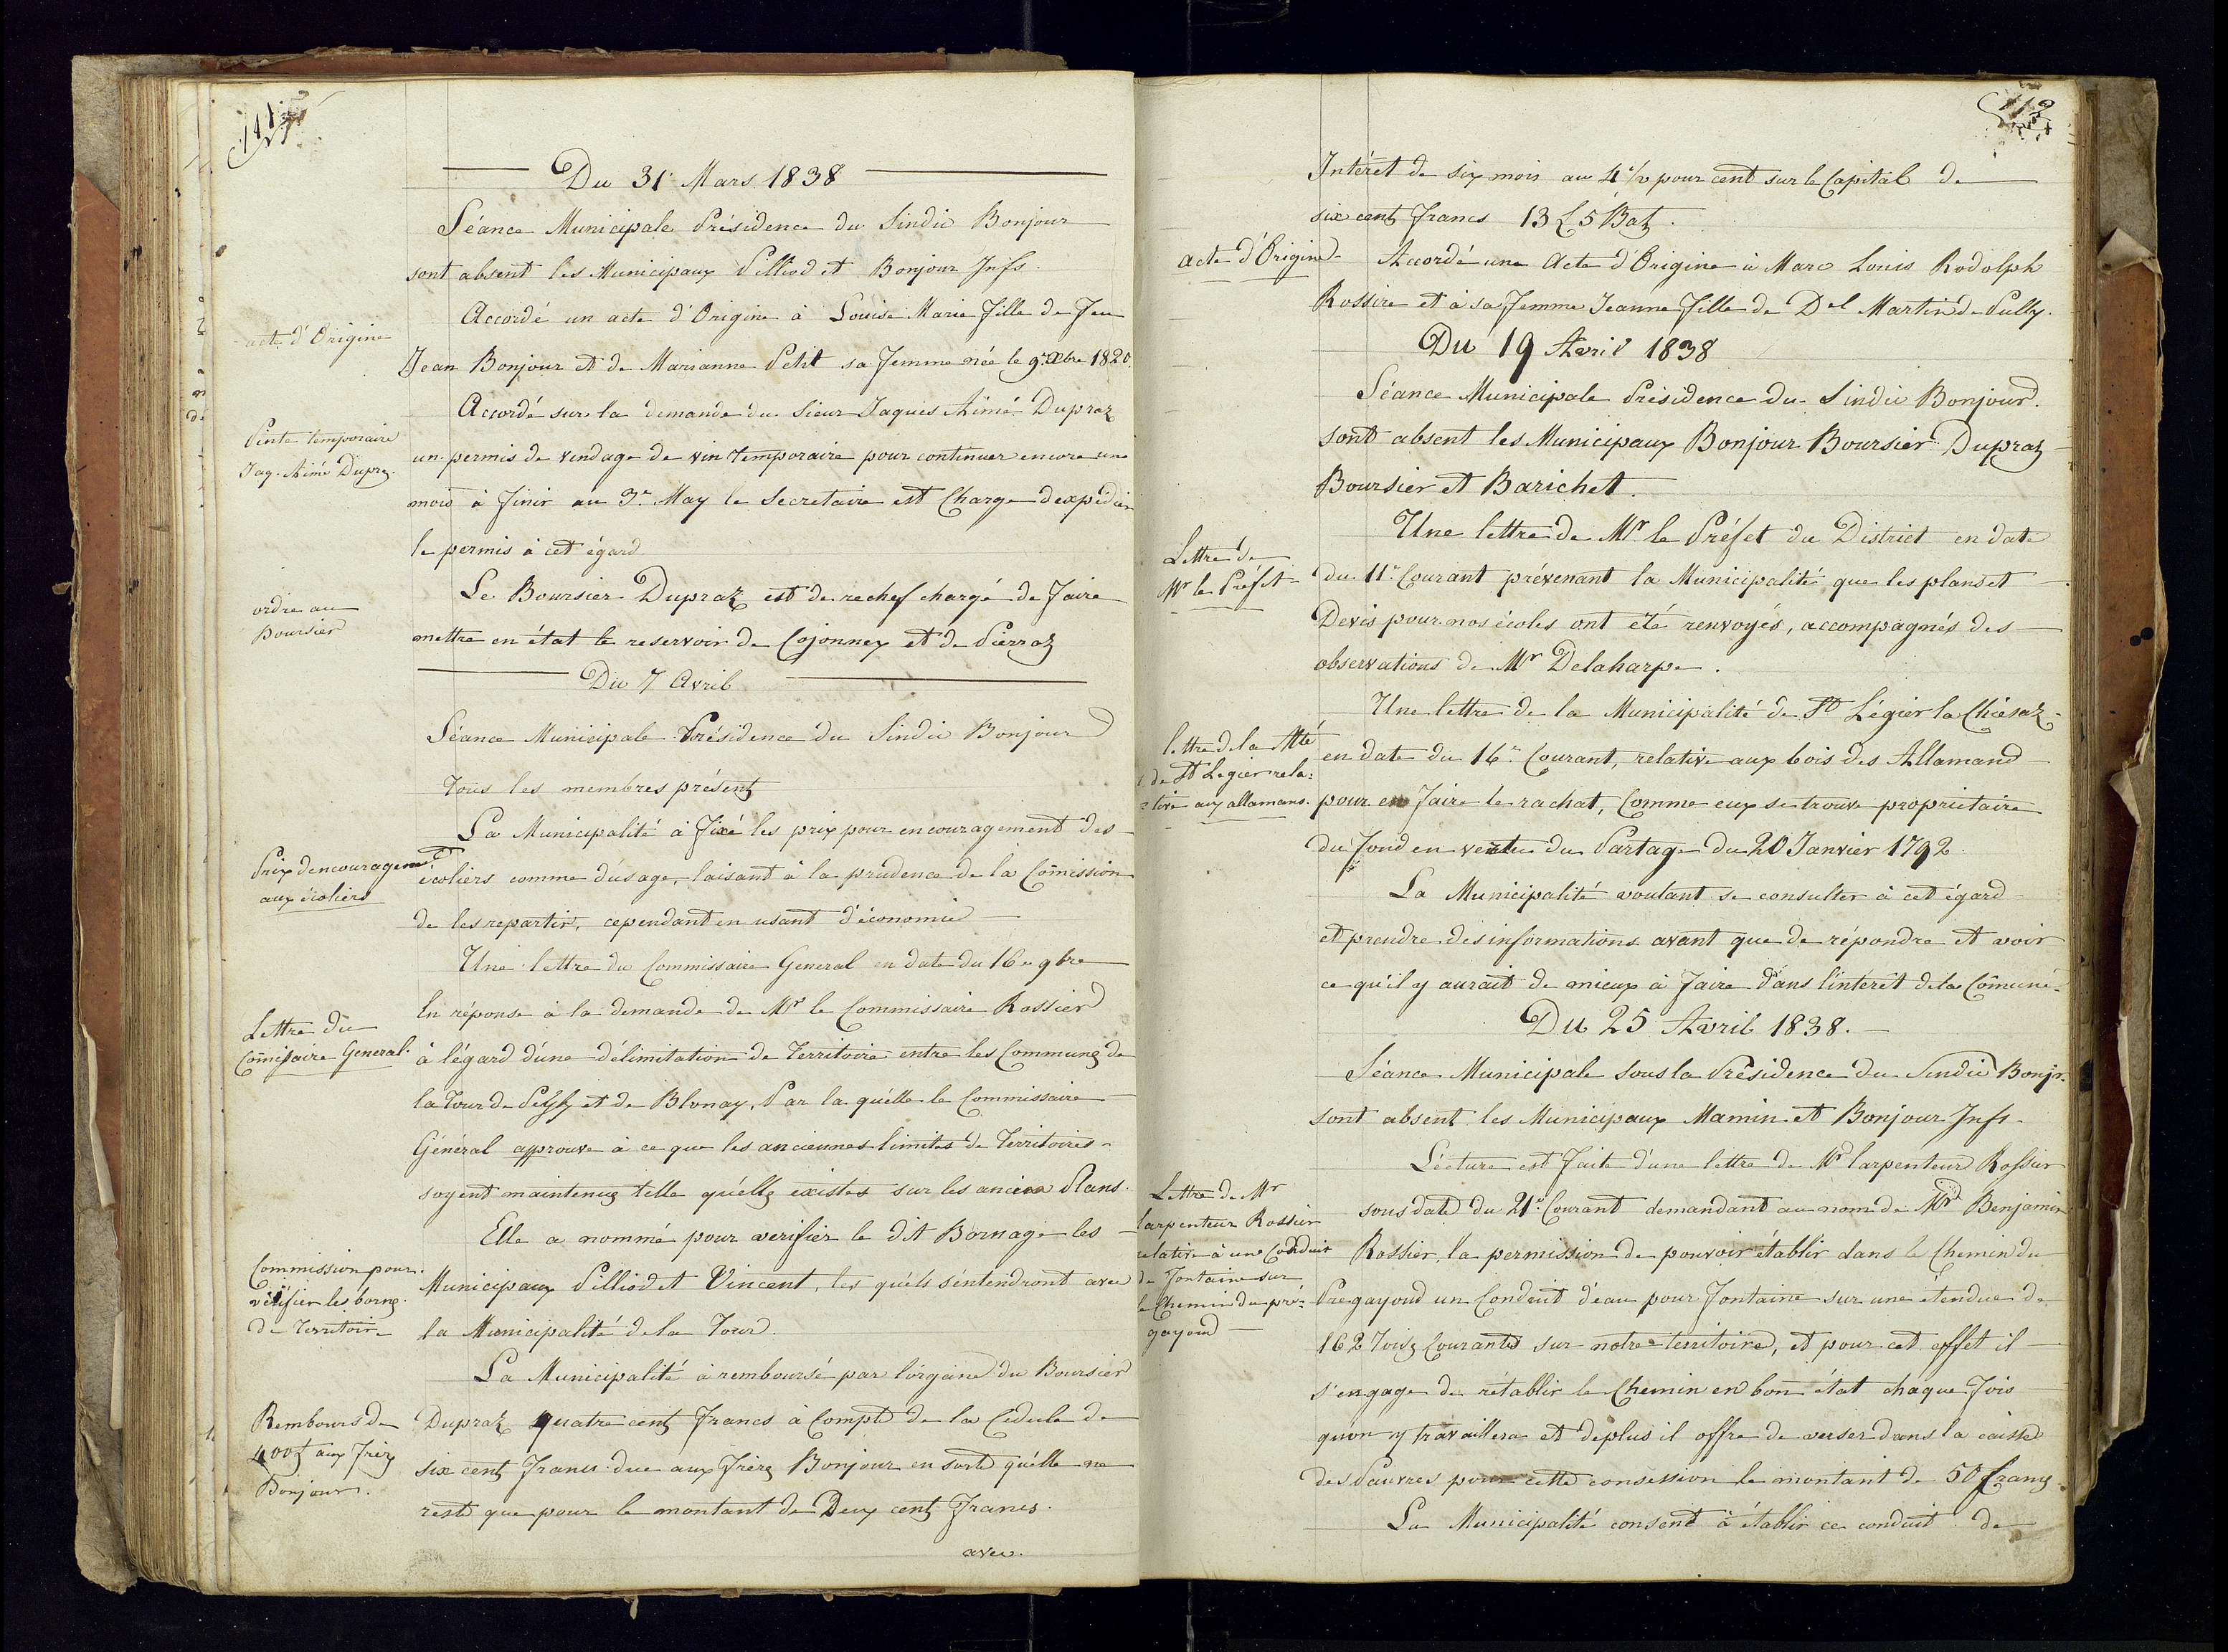 111
Du 31 Mars 1838
Séance Municipale Présidence du Sindic Bonjour
sont absent les Municipaux Pilliod et Bonjour Insp.
acte d'Origine
Accordé un acte d'Origine à Louise Marie fille de feu
Jean Bonjour et de Marianne Petit sa femme née le 9.e Xbre 1820.
Pinte temporaire
Jaq. Aimé Dupraz.
Accordé sur la demande du Sieur Jaques Aimé Dupraz
un permis de vendage de vin temporaire pour continuer encore une
mois à finir au 3.e May le Secretaire est Charge dexpédier
le permis à cet égard
ordre au
Boursier
Le Boursier Dupraz est de rechef chargé de faire
mettre en état le reservoir de Cojonnex et de Pierraz
Du 7 Avril
Séance Municipale Présidence du Sindic Bonjour
tous les membres présentz
Prix dencouragemt
aux écoliers
La Municipalité à fixé les prix pour encouragement des
écoliers comme dusage, laisant à la prudence de la Comission
de les repartir, cependant en usant d'économie
Lettre du
Comissaire General.
Une lettre du Commissaire General en date du 16e 9bre
En réponse à la demande de Mr le Commissaire Rossier
à légard d'une délimitation de Territoire entre les Communz de
la Tour de Peilz et de Blonay, Par la quélle le Commissaire
Général approuve à ce que les anciennes limites de Territoires
soyent maintenuz telle qu'éllz existes sur les anciens Plans.
Commission pour
vérifier les bornz
de Territoire
Elle a nommé pour verifier le dit Bornage les
Municipaux Pilliod et Vincent, les quéls séntendront avec
la Municipalité de la Tour.
Rembours de
400 f aux frérz
Bonjour.
La Municipalité à remboursé par lórgane du Boursier
Dupraz quatre centz francs à Compte de la Cedule de
six centz francs due aux frérz Bonjour en sorte quélle ne
reste que pour le montant de Deux centz francs.
avec.
112
Intérêt de six mois au 4 1/2 pour cent sur le Capital de
six centz francs 13 £ 5 Batz.
acte d'Origine
Accordé une Acte d'Origine à Marc Louis Rodolph
Rossire et à sa femme Jeanne fille de Del Martin de Pully.
Du 19 Avril 1838
Séance Municipale Présidence du Sindic Bonjour.
sont absent les Municipaux Bonjour Boursier Dupraz
Boursier et Barichet.
Lettre de
Mr le Préfet
Une lettre de Mr le Préfet du District en date
du 11e Courant prévenant la Municipalité que les plans et
Devis pour nos écoles ont été renvoyés, accompagnés des
observations de Mr Delaharpe.
lettre de la Mté
de St Legier rela:
tive aux allamans.
Une lettre de la Municipalité de St Légier la Chiésaz
en date du 16e Courant, relative aux bois des Allamand
pour en faire le rachat, Comme eux se trouve proprietaire
du fond en vertu du Partage du 20 Janvier 1792.
La Municipalité voulant se consulter à cet égard
et prendre des informations avant que de répondre et voir
ce qu'il y aurait de mieux à faire dans l'intéret de la Comune.
Du 25 Avril 1838.
Séance Municipale sous la Présidence du Sindic Bonjr.
sont absent les Municipaux Mamin et Bonjour Insp.
Lettre de Mr
larpenteur Rossier
relative à une Conduit
de fontaine sur
le Chemin du pré=
gayoud
Lécture est faite d'une lettre de Mr larpenteur Rossier
sous date du 21e Courant demandant au nom de Mr Benjamin
Rossier, la permission de pouvoir établir dans le Chemin du
Pregayoud un Conduit d'eau pour fontaine sur une étendue de
162 Toisz Courantes sur notre territoire, et pour cet effet il
s'engage de rétablir le Chemin en bon état chaque fois
quon y travaillera et deplus il offre de verser dans la caisse
des Pauvres pour cette consession le montant de 50 francz.
La Municipalité consent à établir ce conduit de